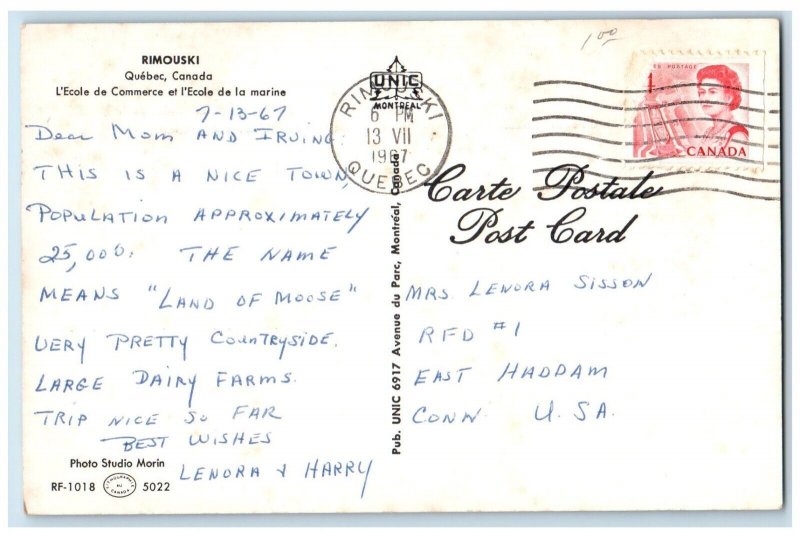 RIMOUSKI
Québec, Canada
L'Ecole de Commerce et l'Ecole de la marine
7-13-67
Dear Mom AND IRVING:
THIS IS A NICE TOWN,
POPULATION APPROXIMATELY
25,000. THE NAME
MEANS "LAND OF MOOSE"
VERY PRETTY COUNTRYSIDE.
LARGE DAIRY FARMS.
TRIP NICE SO FAR
BEST WISHES
LENORA & HARRY
Photo Studio Morin
RF-1018 5022
UNIC
MONTREAL
RIMOUSKI
6 PM
13 VII
1967
QUEBEC
Pub. UNIC 6917 Avenue du Parc, Montréal, Canada
1.00
POSTAGE
1
CANADA
Carte Postale
Post Card
MRS. LENORA SISSON
RFD #1
EAST HADDAM
CONN. U.SA.